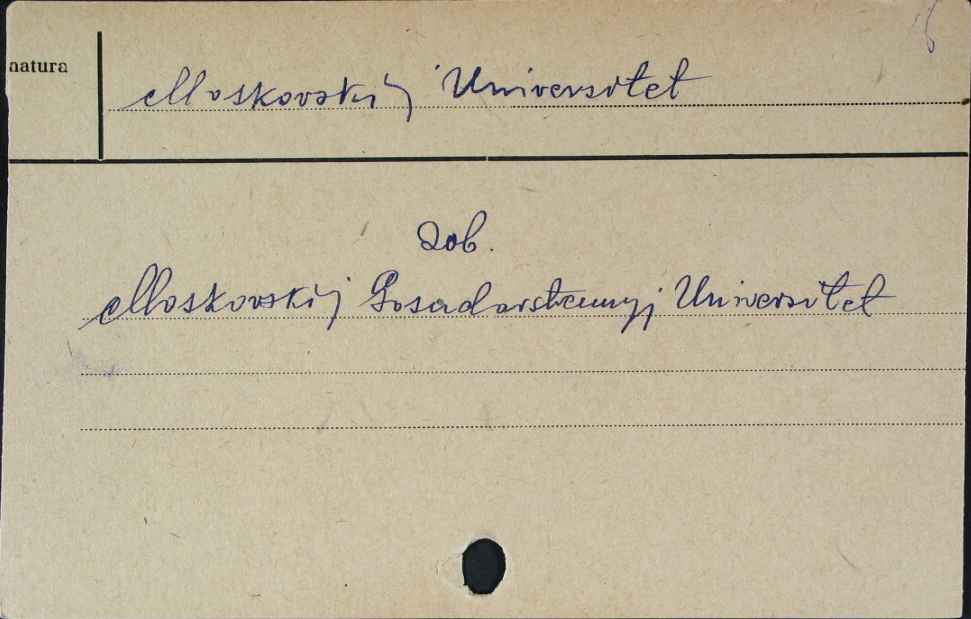 natura
Moskovskij Universitet
zob.
Moskovskij Gosudarstvennyj Universitet